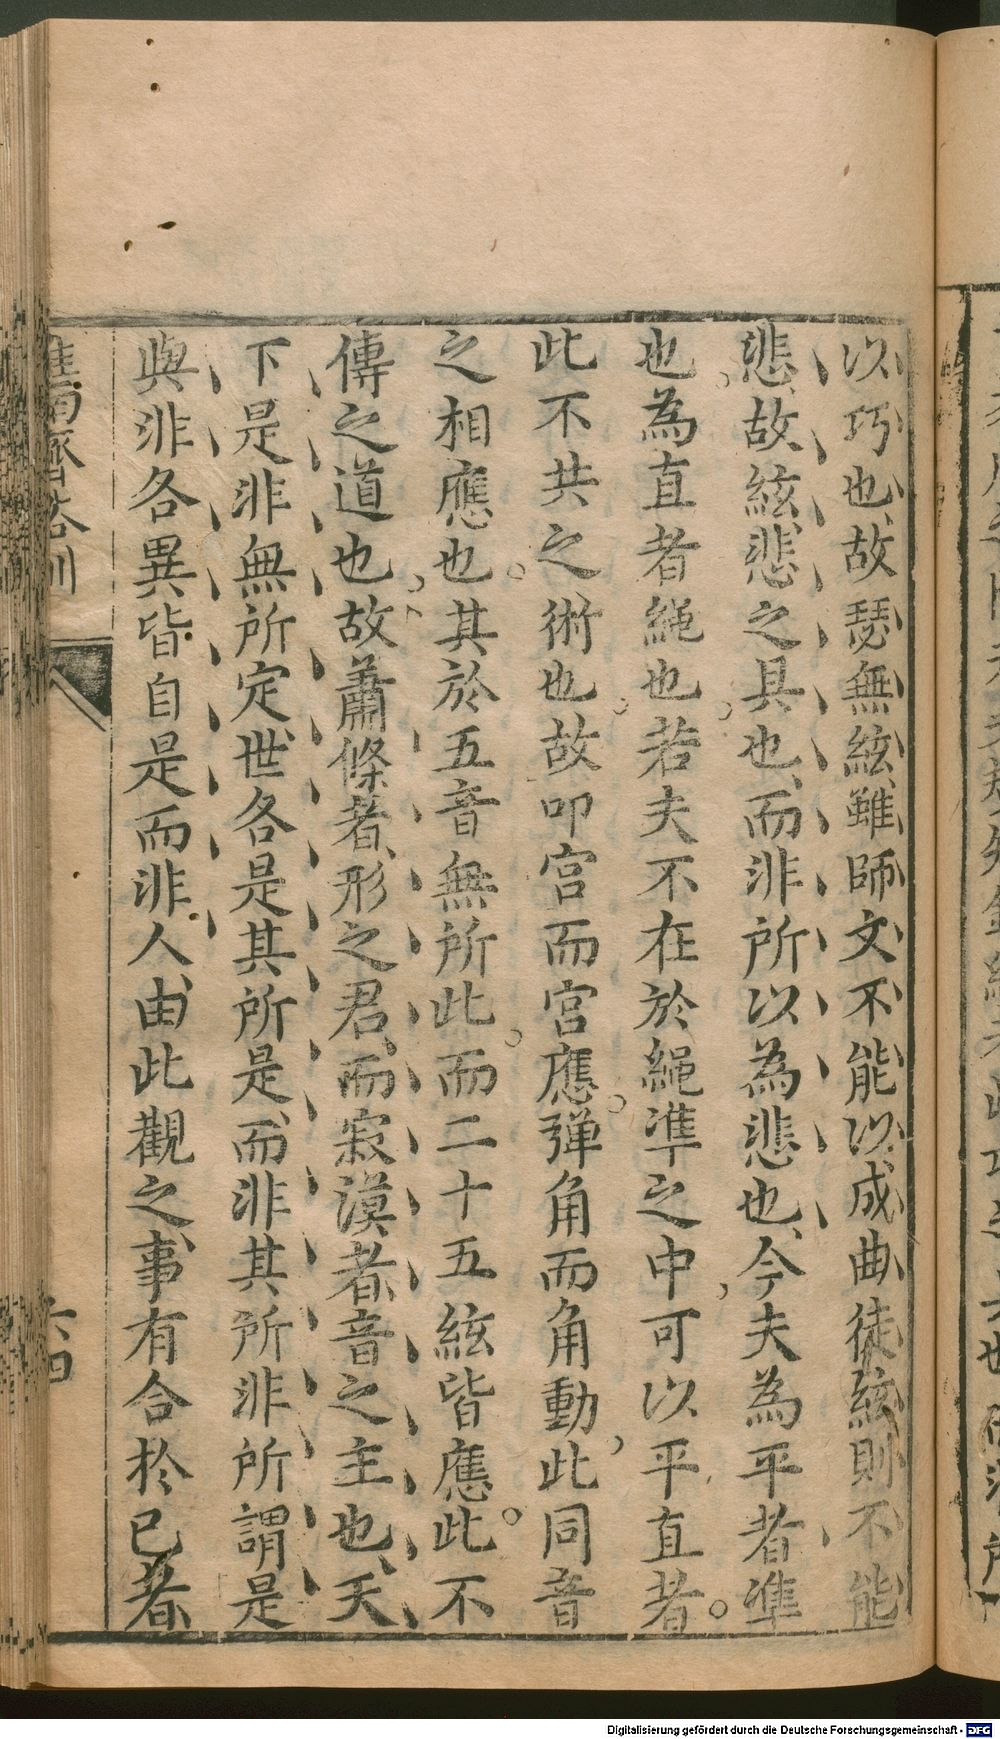 以巧也故瑟無絃雖師文不能以成曲徒絃則不能
悲故絃悲之具也而非所以為悲也今夫為平者準
也為直者繩也若夫不在於繩準之中可以平直者
此不共之術也故叩宮而宮應彈角而角動此同音
之相應也其於五音無所比而二十五絃皆應此不
傳之道也故蕭條者形之君而寂漠者音之主也天
下是非無所定世各是其所是而非其所非所謂是
與非各異皆自是而非人由此觀之事有合於己者
淮南齊俗訓
六四
Digitalisierung gefördert durch die Deutsche Forschungsgemeinschaft - DFG